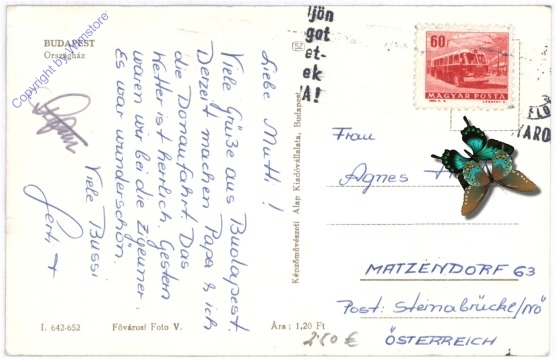 BUDAPEST
Országház
Copyright by Wernstore
Liebe Mutti!
Viele Grüße aus Budapest.
Derzeit machen Papa & ich
die Donaufahrt. Das
Wetter ist herrlich. Gestern
waren wir bei die Zigeuner.
Es war wunderschön.
Viele Bussi
Gerti +
I. 642-652
Fővárosi Foto V.
Ára: 1,20 Ft
2.50 €
Képzőművészeti Alap Kiadóvállalata, Budapest
SZ
ljön
got
et-
ek
'A!
60
MAGYAR POSTA
FLO
VARO
Frau
Agnes
MATZENDORF 63
Post: Steinabrückl/NÖ
ÖSTERREICH